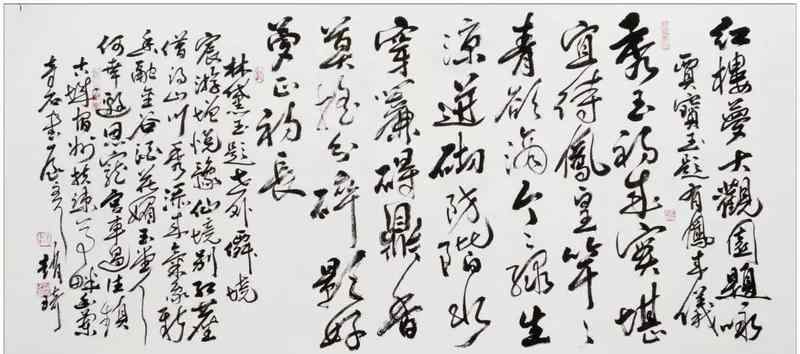 红樓夢大觀園題詠
賈寶玉題有鳳来儀
秀玉初成實堪
宜待鳳皇竿〻
青欲滴个〻绿生
凉迸砌防階水
穿簾碍鼎香
莫摇分碎影好
夢正初長
林黛玉題世外僊境
宸游增悦豫仙境别红塵
借得山川秀添来氣象新
香融金谷酒花媚玉堂人
何幸邀恩寵宫車過往頻